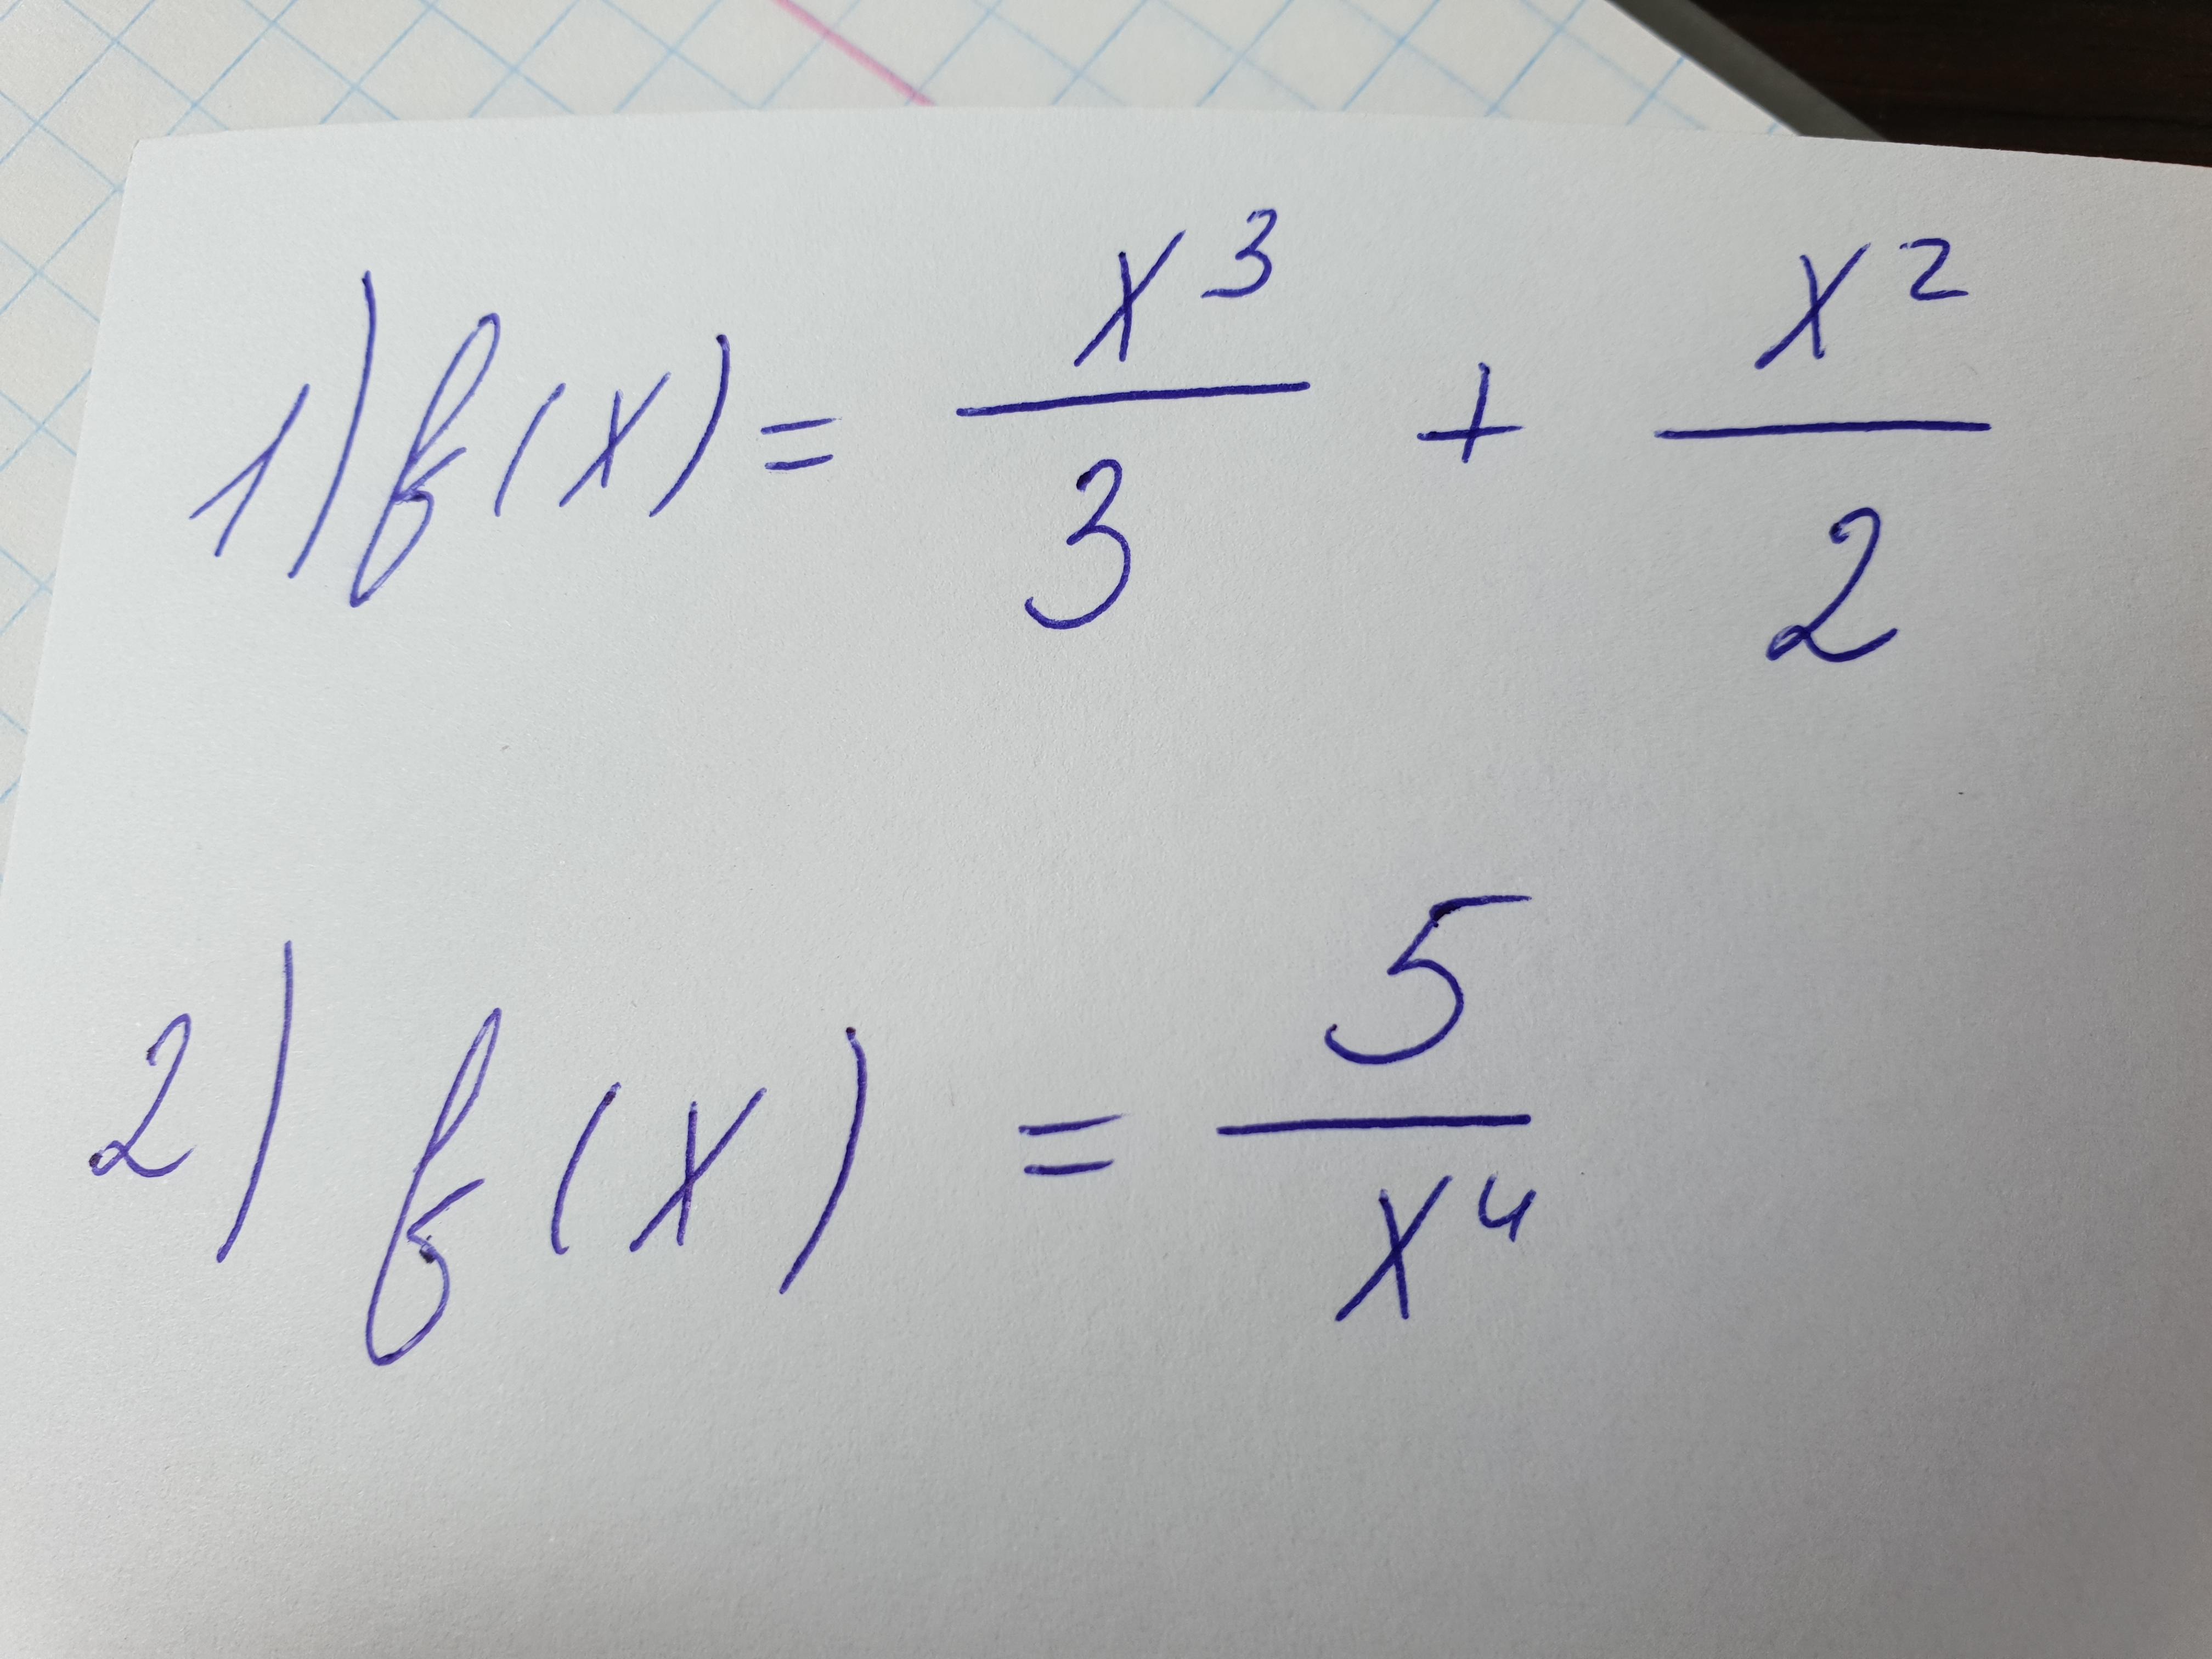 1) f(x) = x³/3 + x²/2
2) f(x) = 5/x⁴